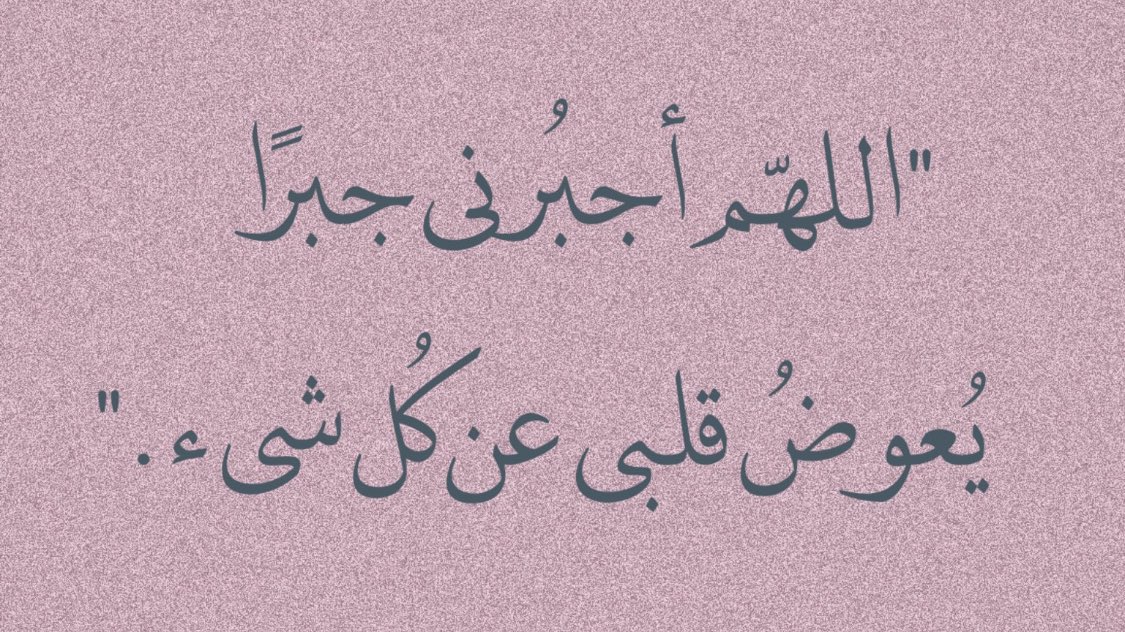 "اللهّم أجبُرنى جبرًا
يُعوضُ قلبى عن كُل شىء ."